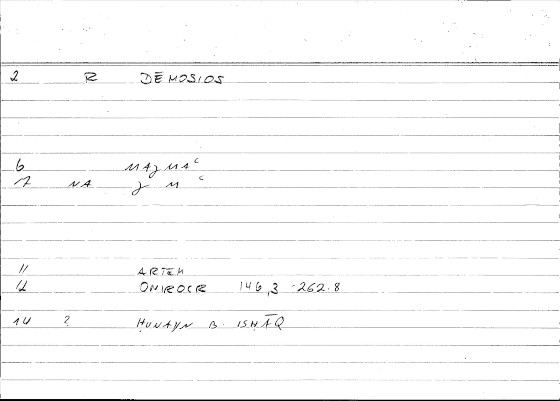 2 R DĒMOSIOS
6 MAǧMAᶜ
7 NA ǧ M ᶜ
11 ARTEM
12 ONIROCR 146,3 -262.8
14 ? ḤUNAYN B. ISḤĀQ